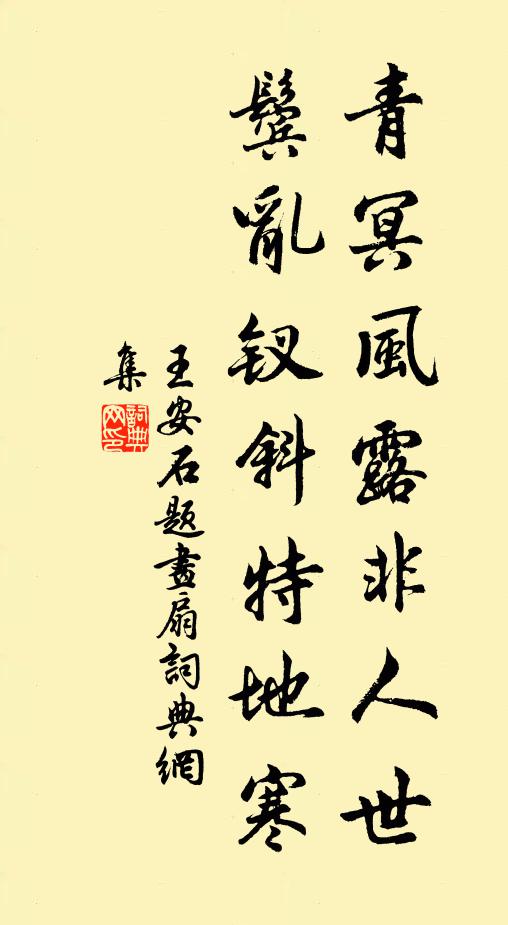 青冥風露非人世
鬓亂钗斜特地寒
王安石題畫扇詞典網
集
詞典網印